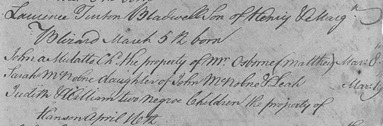 Laurence Turton Bladwell Son of Henry & Marg.
Blizard March 5th born
John a Mulatto Ch. the property of Mr. Osborne March
Sarah McNobne daughter of John McNobne & Leah March
Judith & William two Negroe Children the property of
Hanson April 16th